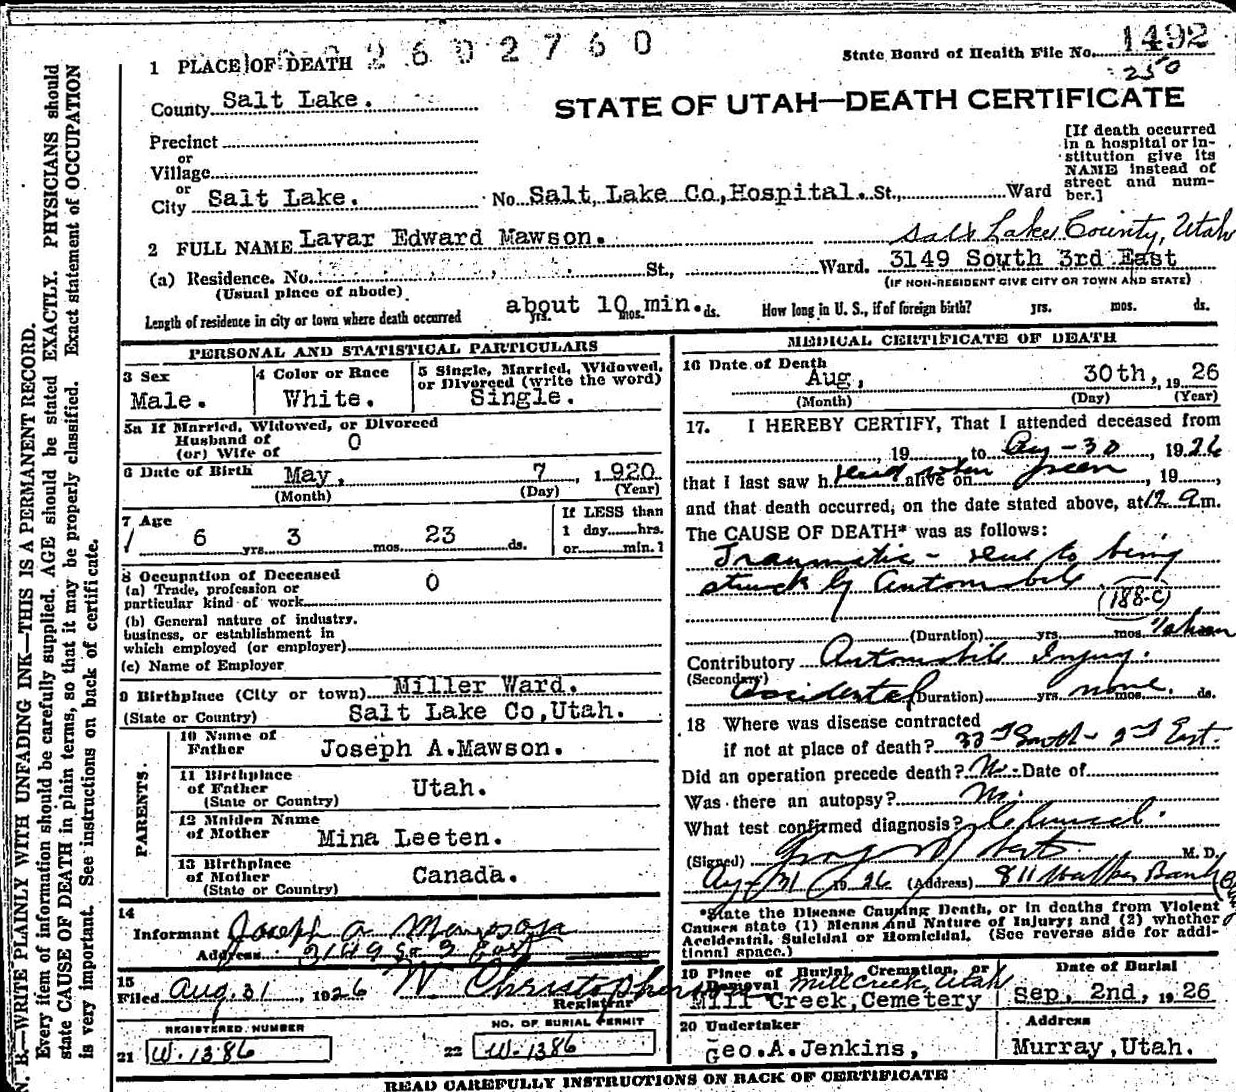 1 PLACE OF DEATH 2602760
State Board of Health File No. 1492
250
County Salt Lake.
STATE OF UTAH—DEATH CERTIFICATE
Precinct
or
Village
or
City Salt Lake. No. Salt Lake Co, Hospital. St., Ward
[If death occurred in a hospital or in-
stitution give its
NAME instead of
street and num-
ber.]
2 FULL NAME Lavar Edward Mawson. Salt Lake County, Utah
(a) Residence. No. St., Ward. 3149 South 3rd East
(Usual place of abode) (IF NON-RESIDENT GIVE CITY OR TOWN AND STATE)
Length of residence in city or town where death occurred about 10 min. yrs. mos. ds. How long in U. S., if of foreign birth? yrs. mos. ds.
PERSONAL AND STATISTICAL PARTICULARS
3 Sex
Male.
4 Color or Race
White.
5 Single, Married, Widowed,
or Divorced (write the word)
Single.
5a If Married, Widowed, or Divorced
Husband of
(or) Wife of 0
6 Date of Birth May, 7, 1920
(Month) (Day) (Year)
7 Age
6 yrs. 3 mos. 23 ds.
If LESS than
1 day hrs.
or min.?
8 Occupation of Deceased
(a) Trade, profession or
particular kind of work 0
(b) General nature of industry,
business, or establishment in
which employed (or employer)
(c) Name of Employer
9 Birthplace (City or town) Miller Ward.
(State or Country) Salt Lake Co, Utah.
PARENTS.
10 Name of
Father Joseph A. Mawson.
11 Birthplace
of Father
(State or Country) Utah.
12 Maiden Name
of Mother Mina Leeten.
13 Birthplace
of Mother
(State or Country) Canada.
14
Informant Joseph A Mawson
Address 3149 So 3 East
15
Filed Aug. 31, 1926 W Christopherson
Registrar
REGISTERED NUMBER
21 W-1386
NO. OF BURIAL PERMIT
22 W-1386
MEDICAL CERTIFICATE OF DEATH
16 Date of Death
Aug, 30th, 1926
(Month) (Day) (Year)
17. I HEREBY CERTIFY, That I attended deceased from
, 19 to Aug-30, 1926
that I last saw h dead when seen alive on , 19 ,
and that death occurred, on the date stated above, at 12 m.
The CAUSE OF DEATH* was as follows:
Traumatic - due to being
struck by Automobile
(188-C)
(Duration) yrs. mos.
Contributory Automobile Injury.
(Secondary)
Accidental (Duration) yrs. none. mos. ds.
18 Where was disease contracted
if not at place of death? 33rd South - 2nd East.
Did an operation precede death? No. Date of
Was there an autopsy? No.
What test confirmed diagnosis? Clinical.
(Signed) M. D.
Aug 31 1926 (Address) 811 Walker Bank
*State the Disease Causing Death, or in deaths from Violent
Causes state (1) Means and Nature of Injury; and (2) whether
Accidental, Suicidal or Homicidal. (See reverse side for addi-
tional space.)
19 Place of Burial, Cremation, or
Removal Mill Creek, Utah
Mill Creek, Cemetery
Date of Burial
Sep, 2nd, 1926
20 Undertaker
Geo. A. Jenkins,
Address
Murray, Utah.
READ CAREFULLY INSTRUCTIONS ON BACK OF CERTIFICATE
N. B.—WRITE PLAINLY WITH UNFADING INK—THIS IS A PERMANENT RECORD.
Every item of information should be carefully supplied. AGE should be stated EXACTLY. PHYSICIANS should
state CAUSE OF DEATH in plain terms, so that it may be properly classified. Exact statement of OCCUPATION
is very important. See instructions on back of certificate.